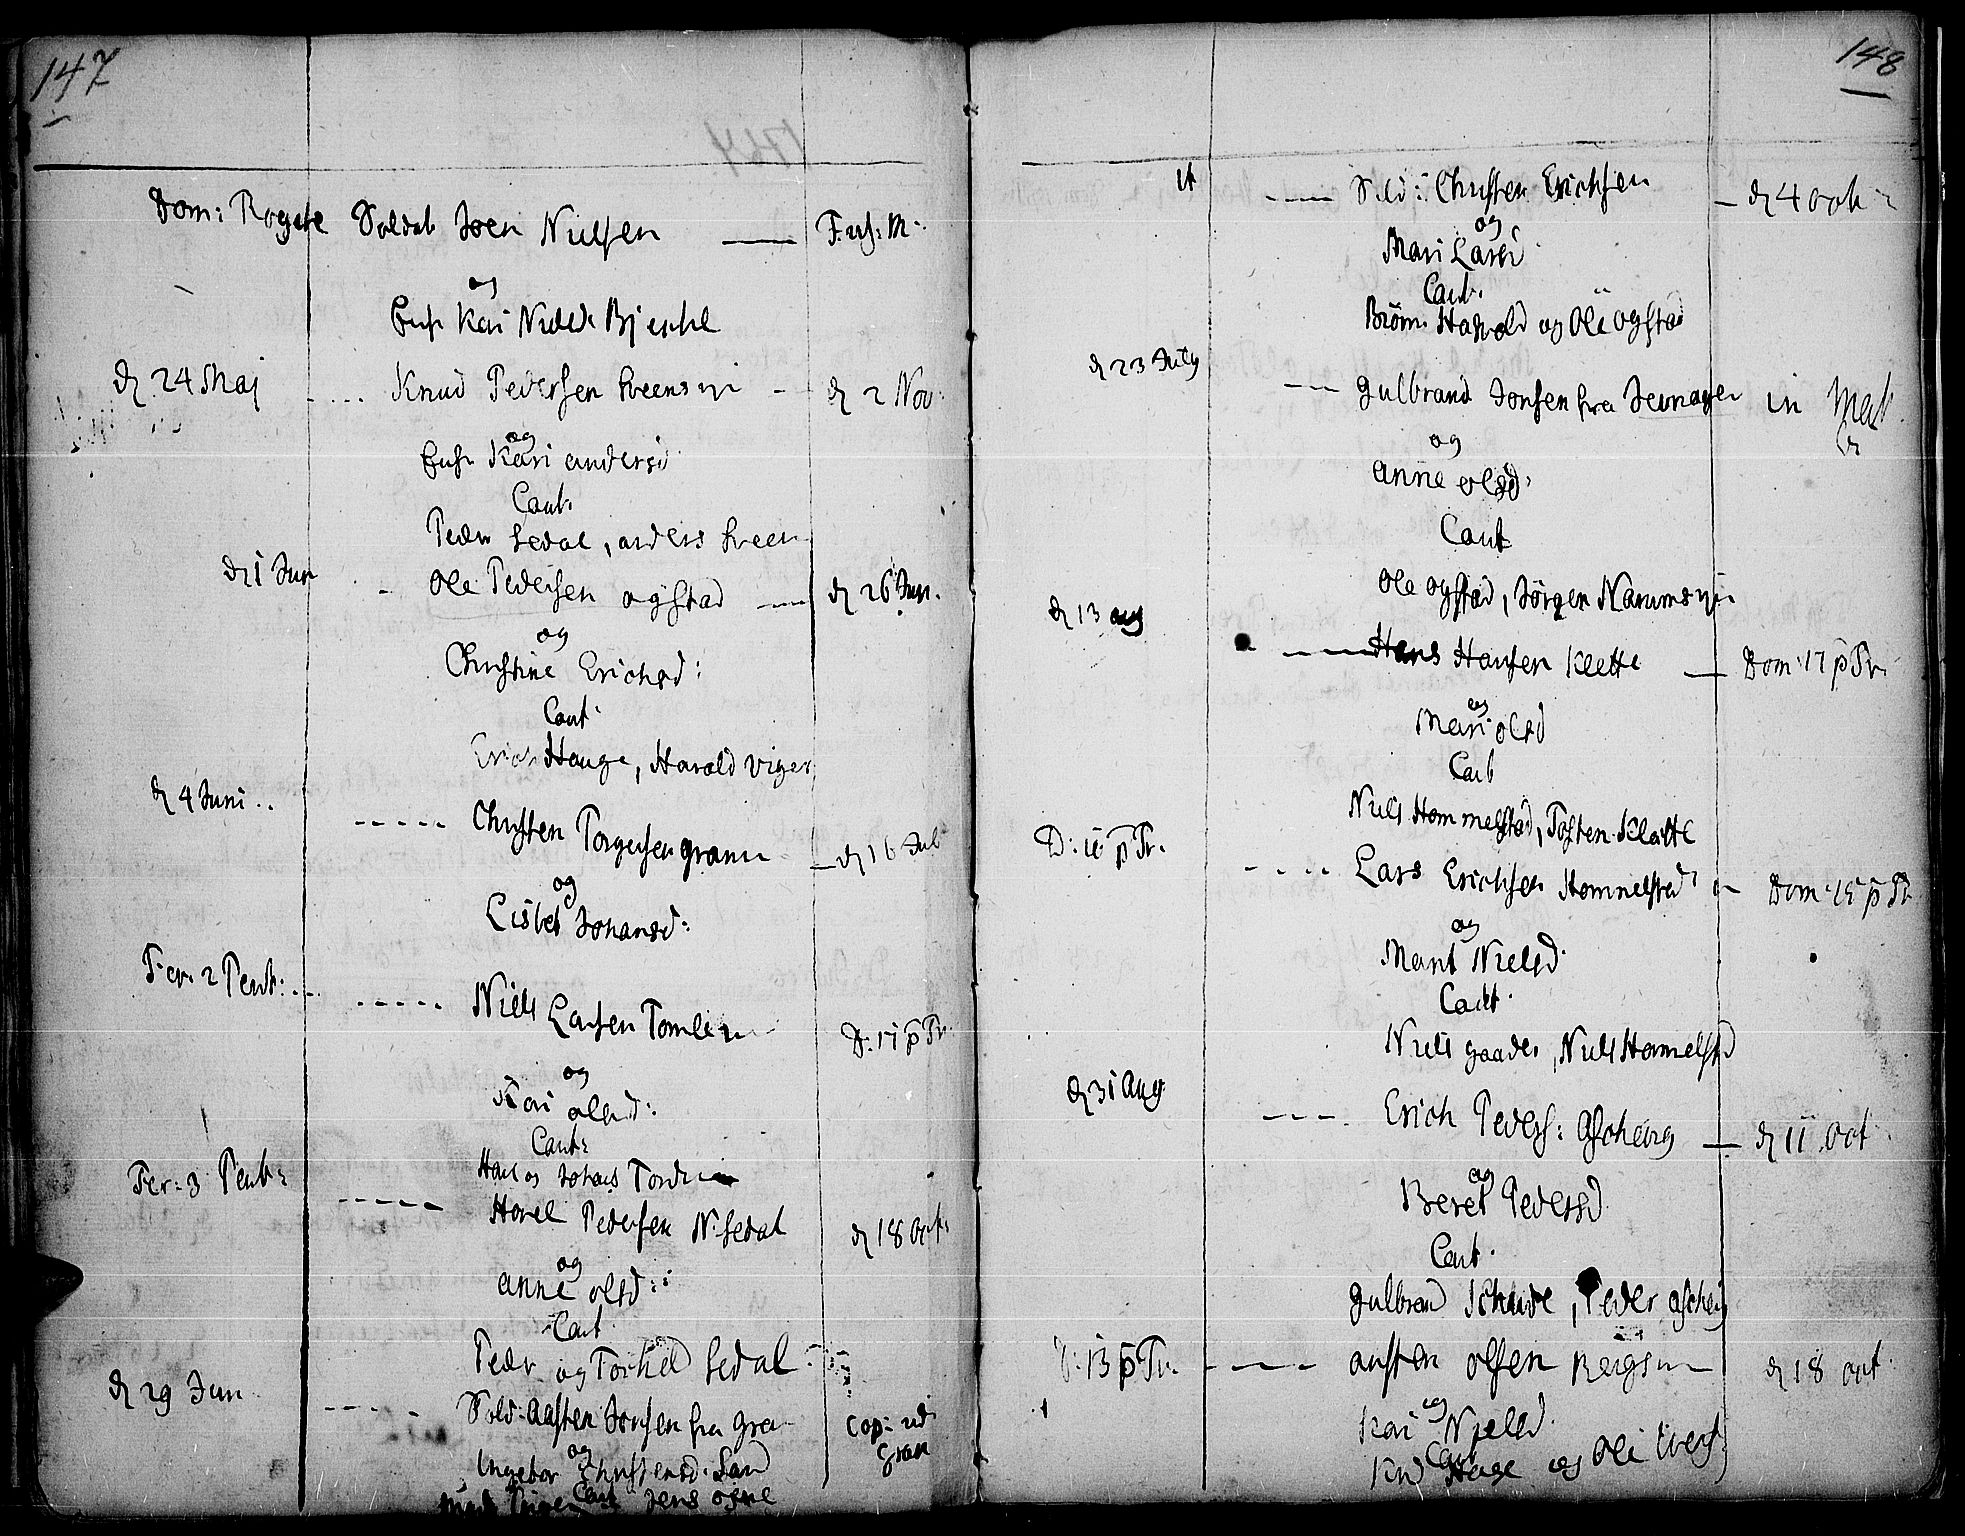 147
Dom: Rogate Soldat Joen Nielsen Fest: M:
og
Enke Kari Nields: Bjerke
d 24 Maj Knud Pedersen d 2 Nov:
og
Enke Kari andersd
Caut:
Peder Sedal, anders
d 1 Jun Ole Pedersen ogstad d 26 Jun.
og
Christine Erichsd:
Caut
Erich Hauge, Harald Viger
d 4 Juni Christen Torgersen gran d 16 Jul
og
Lisbet Johansd:
Fer: 2 Pent: Niels Larsen Tomle D: 17 p Tr
og
Kari olsd:
Caut:
Hans og Johans
Fer: 3 Pent: Hovel Pedersen N: Sedal d 18 Oct:
og
anne olsd:
Caut
Peder og Torkel Sedal
d 29 Jun Sold: Aasten Jonsen fra Gran Cop: ud Gran
og
Ingebor Christensd. Land
Caut Jens
148
it Sold: Christen Erichsen d 4 Octb
og
Mari Larsd
Caut.
Harald og Ole ogstad
d 23 July Gulbrand Jonsen fra Jevnager in Mat
og
anne olsd:
Caut
Ole ogstad, Jörgen
d 13 aug Hans Hansen Klette Dom: 17 p Tr
og
Mari olsd
Caut
Niels Hommelstad, Tosten Klætte
D: 10 p Tr. Lars Erichsen Hommelstad Dom: 15 p Tr
og
Marit Nielsd.
Caut.
Niels gaarder, Niels Hommelstd
d 31 Aug Erich Peders: Ascheirg d 11 Oct
og
Beret Pedersd.
Caut.
Gulbrand, Peder
13 p Tr. austen olsen d 18 oct
og
Kari Njelsd
Caut
Hage og Ole